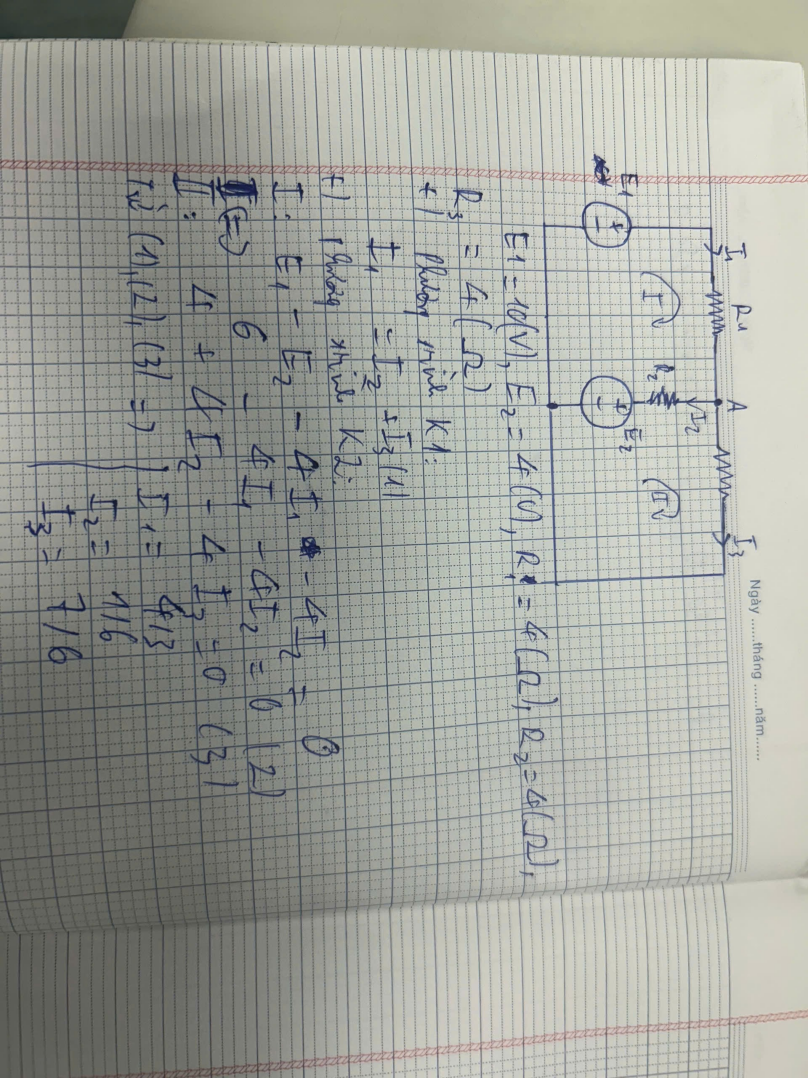 Ngày ......tháng ......năm......
I₁ R₁ A I₃
E₁ + - I R₂ I₂ II
+ - E₂
E₁ = 10(V), E₂ = 4(V), R₁ = 4(Ω), R₂ = 4(Ω),
R₃ = 4(Ω)
+) Phương trình K1:
I₁ = I₂ + I₃ (1)
+) Phương trình K2:
I: E₁ - E₂ - 4I₁ - 4I₂ = 0
(=) 6 - 4I₁ - 4I₂ = 0 (2)
II: 4 + 4I₂ - 4I₃ = 0 (3)
Từ (1), (2), (3) =) I₁ = 4/3
I₂ = 1/6
I₃ = 7/6